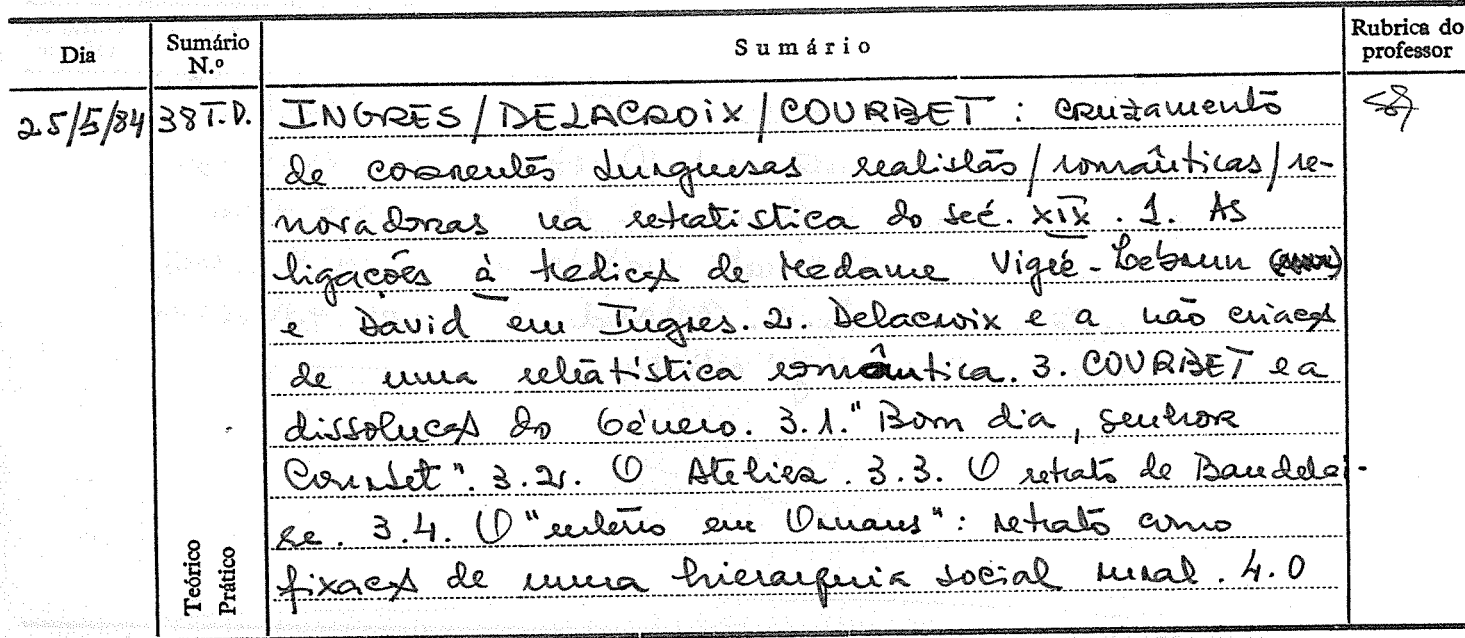 Dia Sumário N.º Sumário Rubrica do professor
25/5/84 38 T.P. INGRES/DELACROIX/COURBET: cruzamento
de correntes burguesas realistas/românticas/re-
novadoras na retratística do séc. XIX. 1. As
ligações à tradição de Madame Vigée-Lebrun
e David em Ingres. 2. Delacroix e a não criação
de uma retratística romântica. 3. COURBET e a
dissolução do Género. 3.1. "Bom dia, senhor
Courbet". 3.2. O Atelier. 3.3. O retrato de Baudelai-
re. 3.4. O "enterro em Ornans": retrato como
fixação de uma hierarquia social rural. 4. O
Teórico
Prático